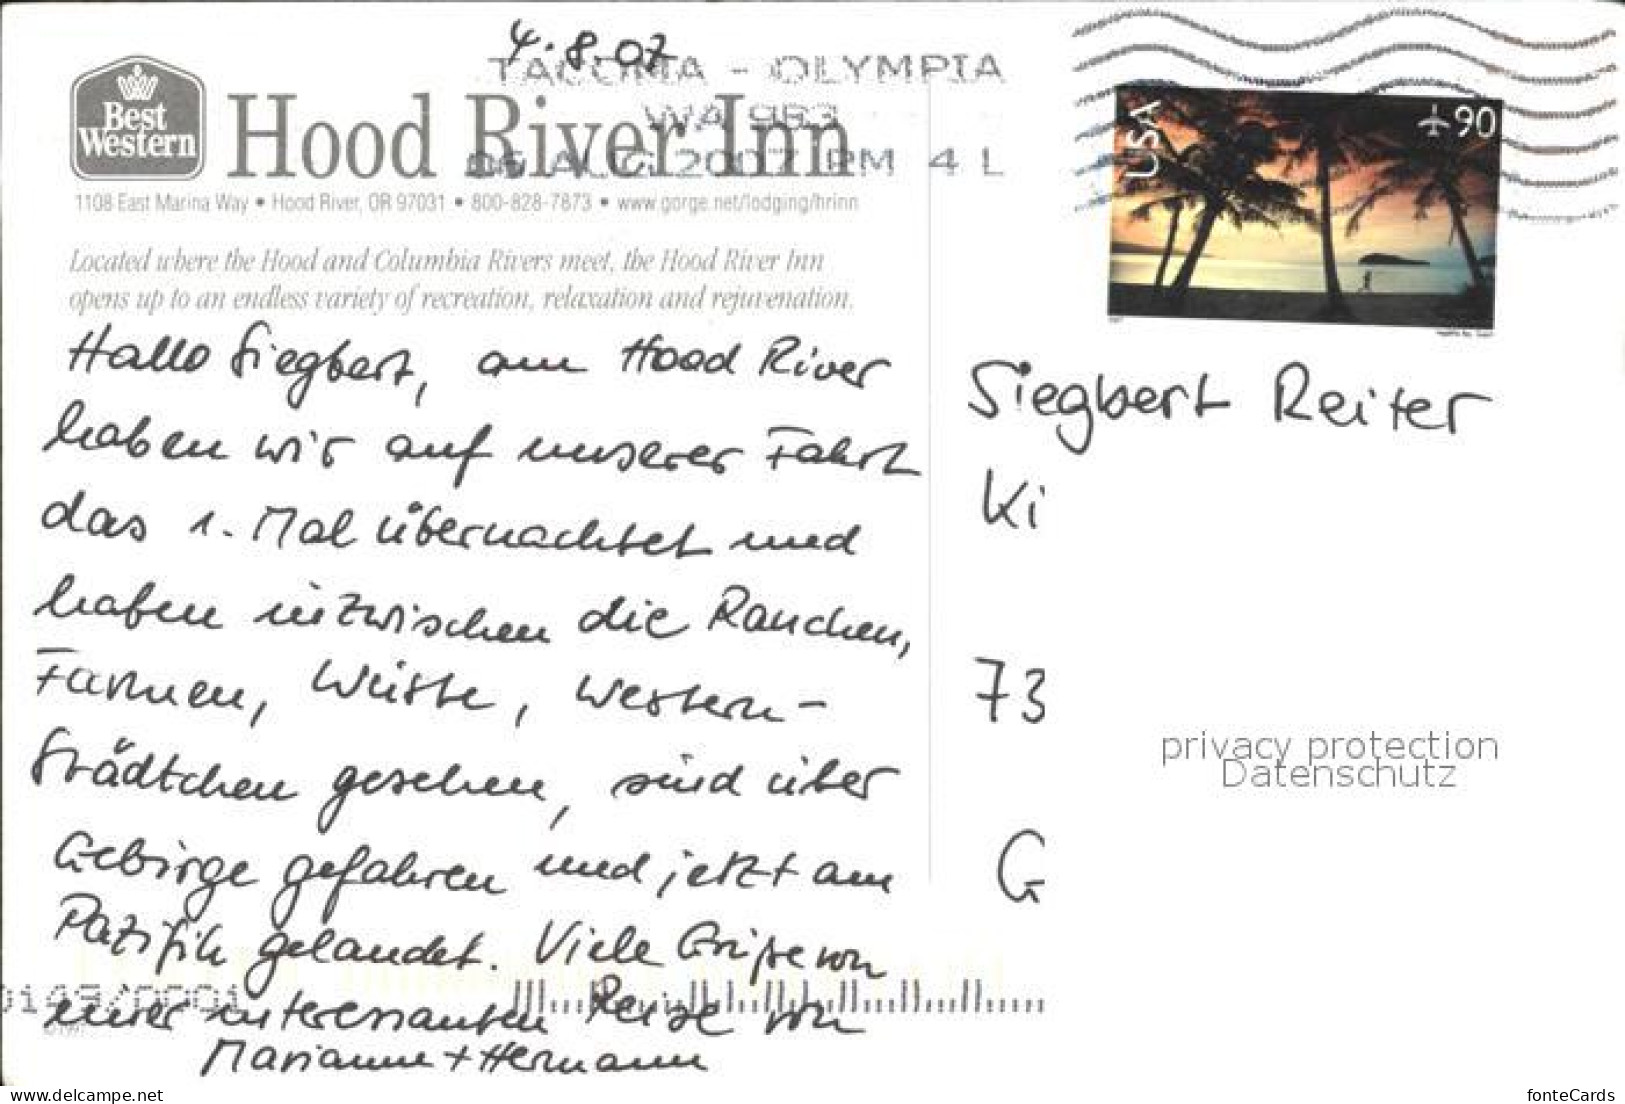 4.8.07
TACOMA - OLYMPIA
WA 983
06 AUG 2007 PM 4 L
Best
Western
Hood River Inn
1108 East Marina Way • Hood River, OR 97031 • 800-828-7873 • www.gorge.net/lodging/hrinn
Located where the Hood and Columbia Rivers meet, the Hood River Inn
opens up to an endless variety of recreation, relaxation and rejuvenation.
USA
90
Hallo Siegbert, am Hood River
haben wir auf unserer Fahrt
das 1. Mal übernachtet und
haben inzwischen die Ranchen,
Farmen, Wüste, Western-
Städtchen gesehen, sind über
Gebirge gefahren und jetzt am
Pazifik gelandet. Viele Grüße von
einer interessanten Reise von
Marianne + Hermann
Siegbert Reiter
Ki
73
G
privacy protection
Datenschutz
delcampe.net
fonteCards